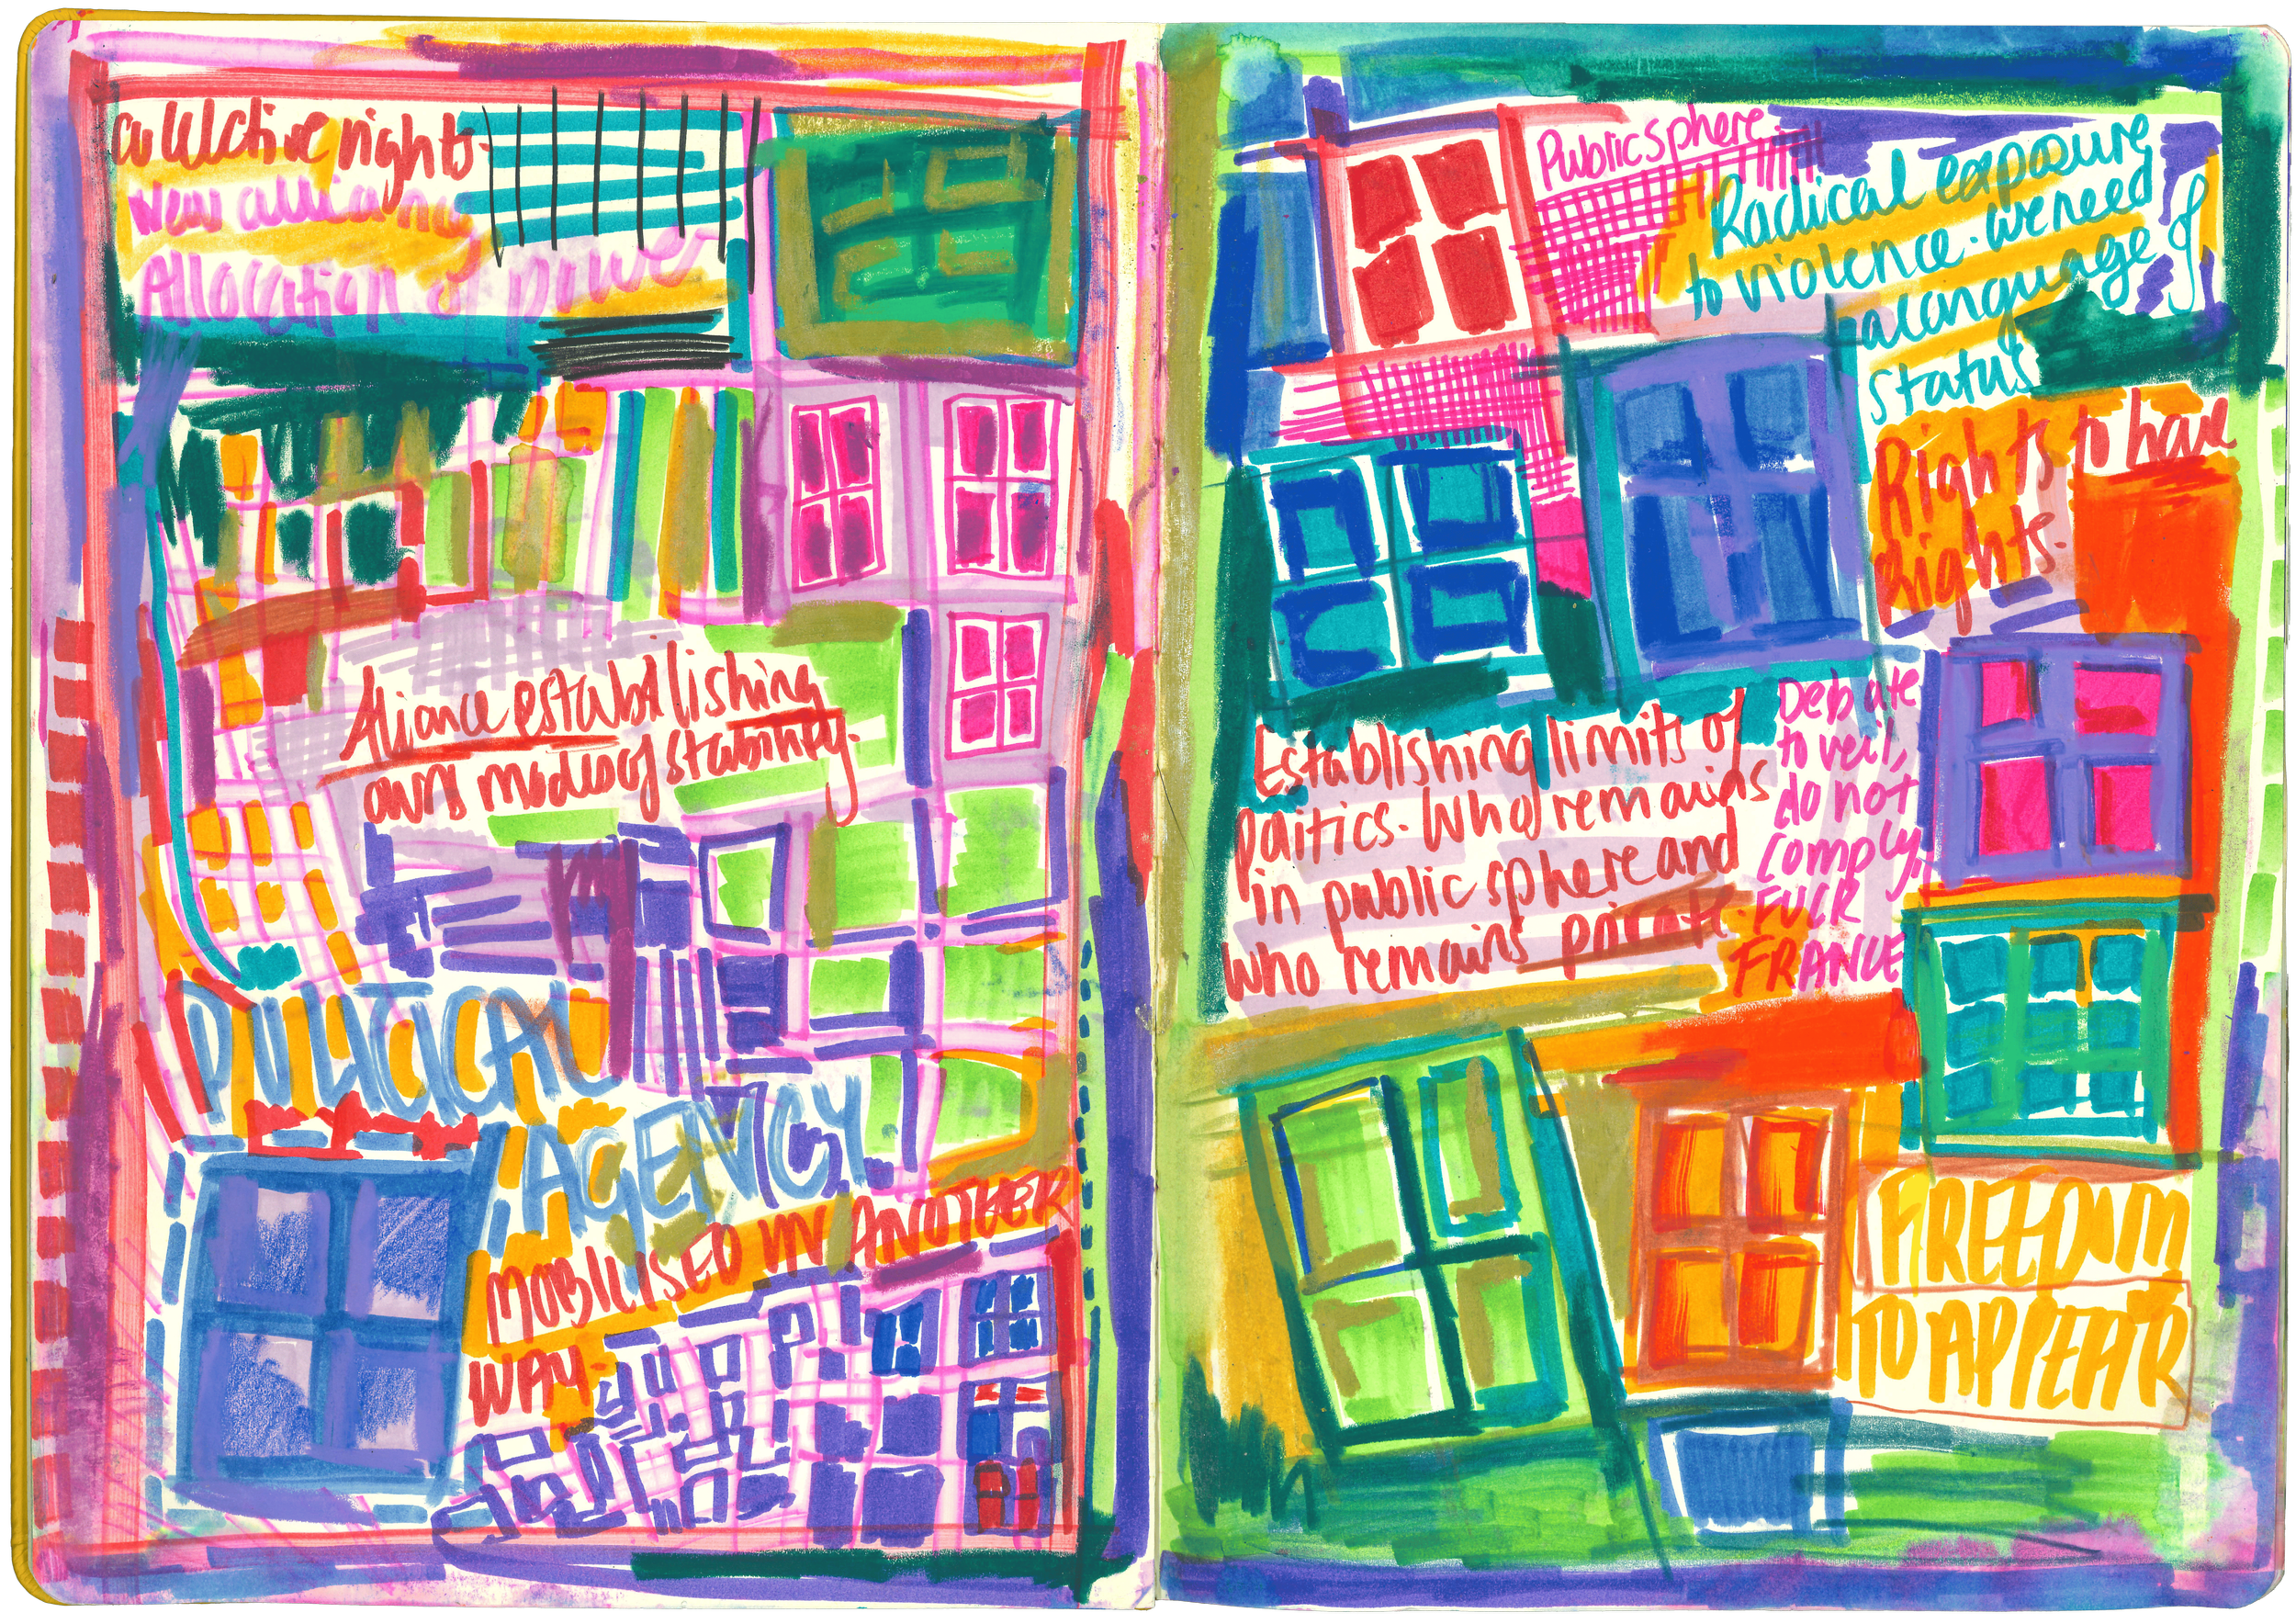 collective rights.
New alliance
Allocation of power
Aliance establishing
own modes of stability.
POLITICAL
AGENCY
MOBILISED IN ANOTHER
WAY.
Public sphere.
Radical exposure
to violence. We need
a language of
status
Rights to have
Rights.
Establishing limits of
politics. Who remains
in public sphere and
who remains private.
Debate
to veil,
do not
comply,
FUCK
FRANCE
FREEDOM
TO APPEAR